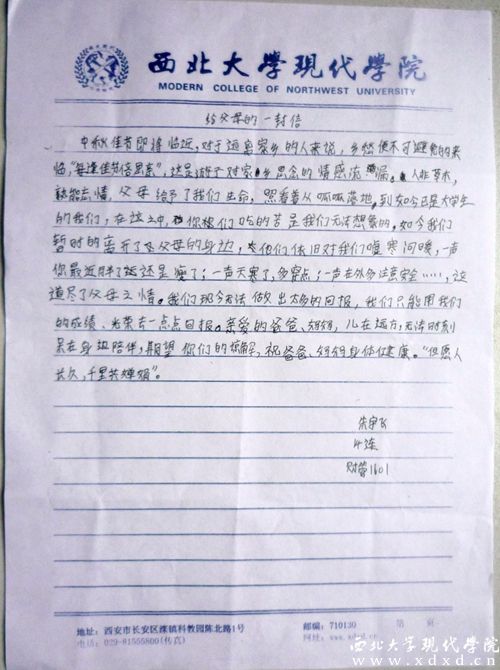 西北大學現代學院
MODERN COLLEGE OF NORTHWEST UNIVERSITY
给父母的一封信
中秋佳节即将临近,对于远离家乡的人来说,乡愁便不可避免的来
临,"每逢佳节倍思亲",这是游子对家乡思念的情感流漏。人非草木,
孰能无情,父母给予了我们生命,照看着从呱呱落地,到如今已是大学生
的我们,在这之中,你们吃的苦是我们无法想象的,如今我们
暂时的离开了父母的身边,他们依旧对我们嘘寒问暖,一声
你最近胖了还是瘦了;一声天寒了,多穿点;一声在外多注意安全……,这
道尽了父母之情。我们现今无法做出太多的回报,我们只能用我们
的成绩、光荣去一点点回报。亲爱的爸爸、妈妈,儿在远方,无法时刻
呆在身边陪伴,期望你们的谅解,祝爸爸、妈妈身体健康。"但愿人
长久,千里共婵娟"。
朱宇飞
4连
财管1601
地址:西安市长安区滦镇科教园陈北路1号
电话:029-81555800(传真)
邮编:710130
第 页
网址:www.xdxd.cn
西北大学现代学院
www.xdxd.cn